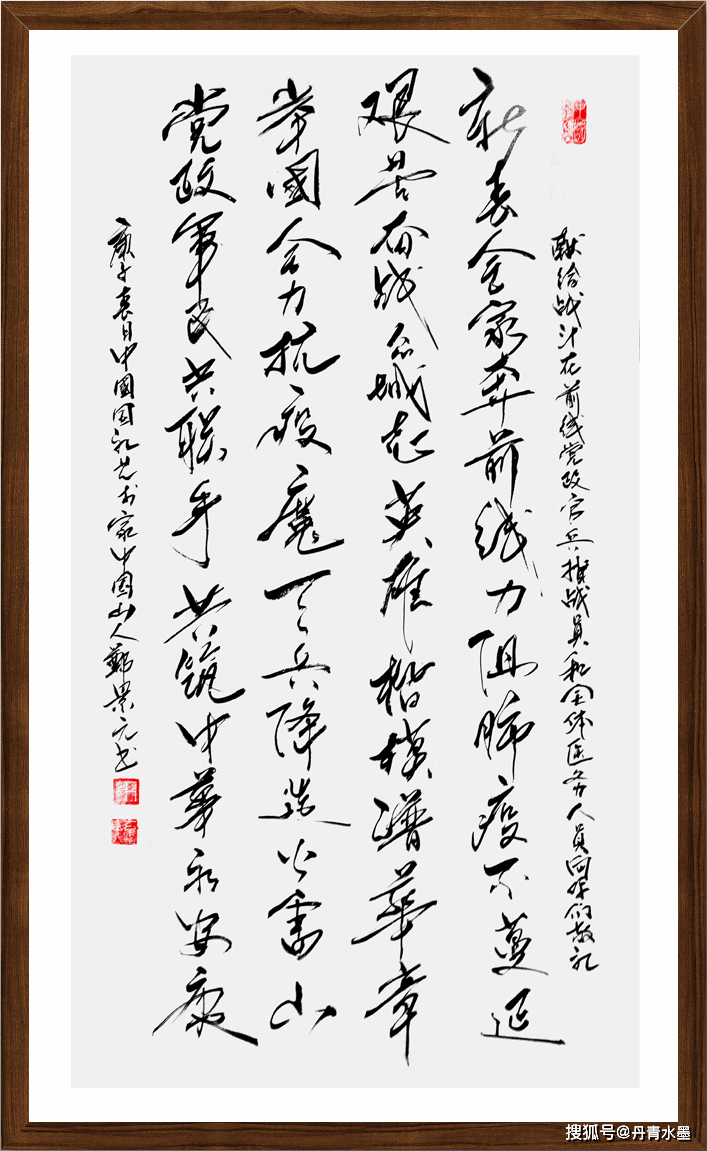 献给战斗在前线党政官兵指战员和全体医务人员向你们敬礼
新春舍家奔前线力阻肺疫不蔓延
艰苦奋战众城志英雄楷模谱华章
举國合力抗疫魔天兵降造火雷山
党政军民共联手共筑中华永安康
庚子春日中國国礼艺术家中国山人郑景元书
搜狐号@丹青水墨